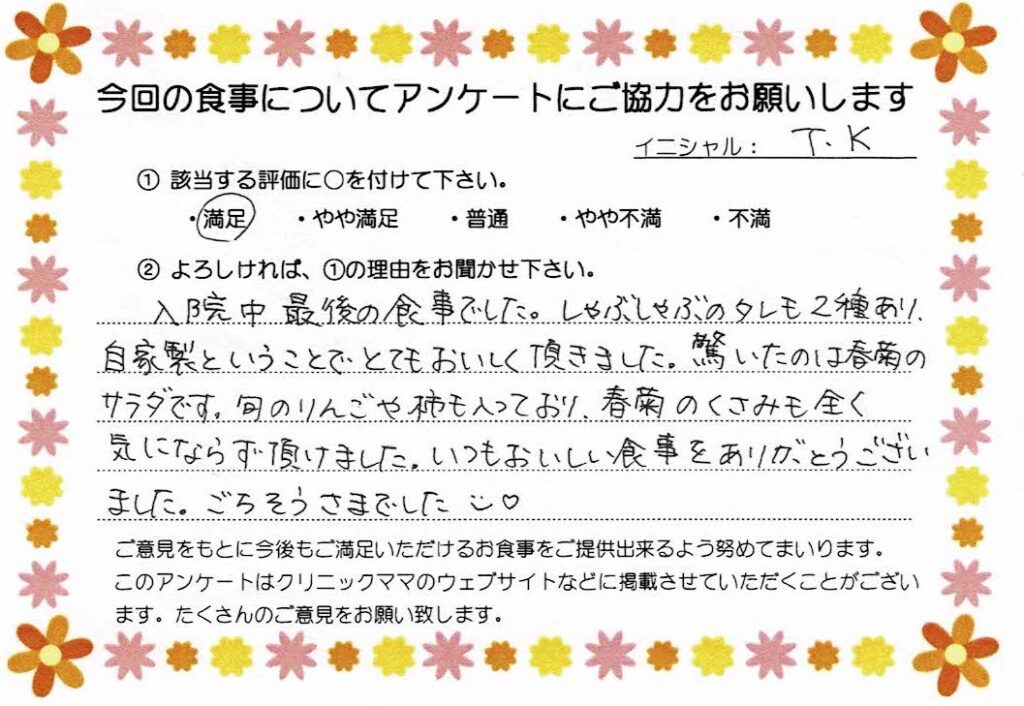 今回の食事についてアンケートにご協力をお願いします
イニシャル： T.K
① 該当する評価に○を付けて下さい。
・満足 ・やや満足 ・普通 ・やや不満 ・不満
② よろしければ、①の理由をお聞かせ下さい。
入院中最後の食事でした。しゃぶしゃぶのタレも2種あり、
自家製ということでとてもおいしく頂きました。驚いたのは春菊の
サラダです。旬のりんごや柿も入っており、春菊のくさみも全く
気にならず頂けました。いつもおいしい食事をありがとうござい
ました。ごちそうさまでした ♡
ご意見をもとに今後もご満足いただけるお食事をご提供出来るよう努めてまいります。
このアンケートはクリニックママのウェブサイトなどに掲載させていただくことがござい
ます。たくさんのご意見をお願い致します。